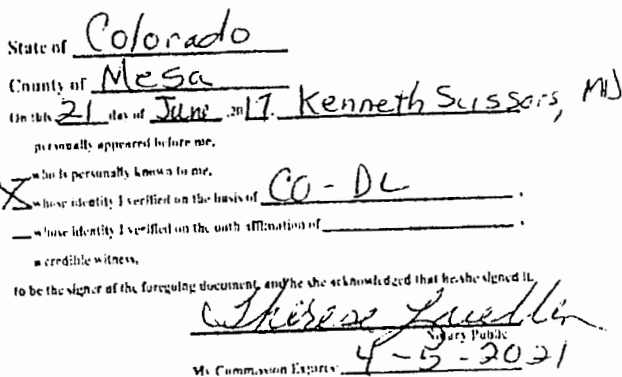 State of Colorado
County of Mesa
On this 21 day of June, 2017. Kenneth Scissors, MD
personally appeared before me,
who is personally known to me,
X whose identity I verified on the basis of CO-DL,
whose identity I verified on the oath affirmation of,
a credible witness,
to be the signer of the foregoing document, and he she acknowledged that he she signed it.
Therese
Notary Public
My Commission Expires: 4-5-2021